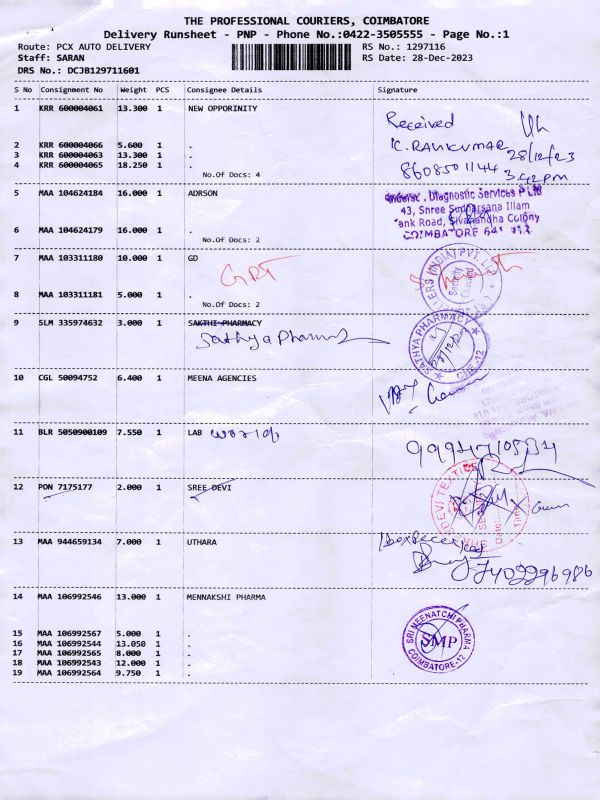 THE PROFESSIONAL COURIERS, COIMBATORE
Delivery Runsheet - PNP - Phone No.:0422-3505555 - Page No.:1
Route: PCX AUTO DELIVERY RS No.: 1297116
Staff: SARAN RS Date: 28-Dec-2023
DRS No.: DCJB129711601
S No Consignment No Weight PCS Consignee Details Signature
1 KRR 600004061 13.300 1 NEW OPPORINITY
Received
2 KRR 600004066 5.600 1 .
K. RAVIKUMAR 28/12/23
3 KRR 600004063 13.300 1 .
4 KRR 600004065 18.250 1 .
8608501144 3.42 PM
No.Of Docs: 4
5 MAA 104624184 16.000 1 ADRSON
Diagnostic Services P Ltd
43, Shree Sudharsana Illam
Road, Sivanandha Colony
6 MAA 104624179 16.000 1 .
COIMBATORE 641
No.Of Docs: 2
7 MAA 103311180 10.000 1 GD
GRT
(INDIA) PVT.
Security
Checked
8 MAA 103311181 5.000 1 .
No.Of Docs: 2
9 SLM 335974632 3.000 1 SAKTHI PHARMACY
Sathya Pharmacy
SATHYA PHARMACY
CBE-12
10 CGL 50094752 6.400 1 MEENA AGENCIES
11 BLR 5050900109 7.550 1 LAB world
12 PON 7175177 2.000 1 SREE DEVI
DEVI TEXTILES
Date:
Time:
13 MAA 944659134 7.000 1 UTHARA
14 MAA 106992546 13.000 1 MENNAKSHI PHARMA
SRI MEENATCHI PHARMA
SMP
COIMBATORE-12
15 MAA 106992567 5.000 1 .
16 MAA 106992544 13.050 1 .
17 MAA 106992565 8.000 1 .
18 MAA 106992543 12.000 1 .
19 MAA 106992564 9.750 1 .